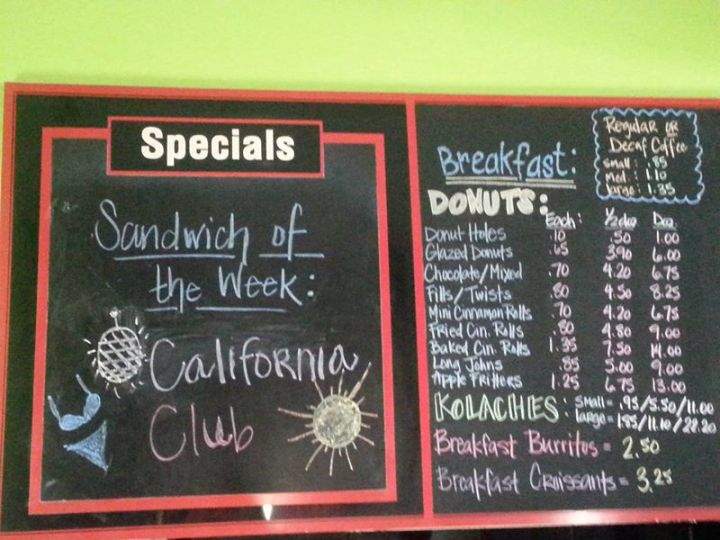 Specials
Sandwich of
the Week:
California
Club
Regular or
Decaf Coffee
small: .85
med: 1.10
large: 1.35
Breakfast:
DONUTS:
Each: 1/2 doz Doz.
Donut Holes .10 .50 1.00
Glazed Donuts .65 3.90 6.00
Chocolate/Mixed .70 4.20 6.75
Fills/Twists .80 4.50 8.25
Mini Cinnamon Rolls .70 4.20 6.75
Fried Cin. Rolls .80 4.80 9.00
Baked Cin. Rolls 1.35 7.50 14.00
Long Johns .85 5.00 9.00
Apple Fritters 1.25 6.75 13.00
KOLACHES: small = .95/5.50/11.00
large = 1.85/11.10/22.20
Breakfast Burritos = 2.50
Breakfast Croissants = 3.25